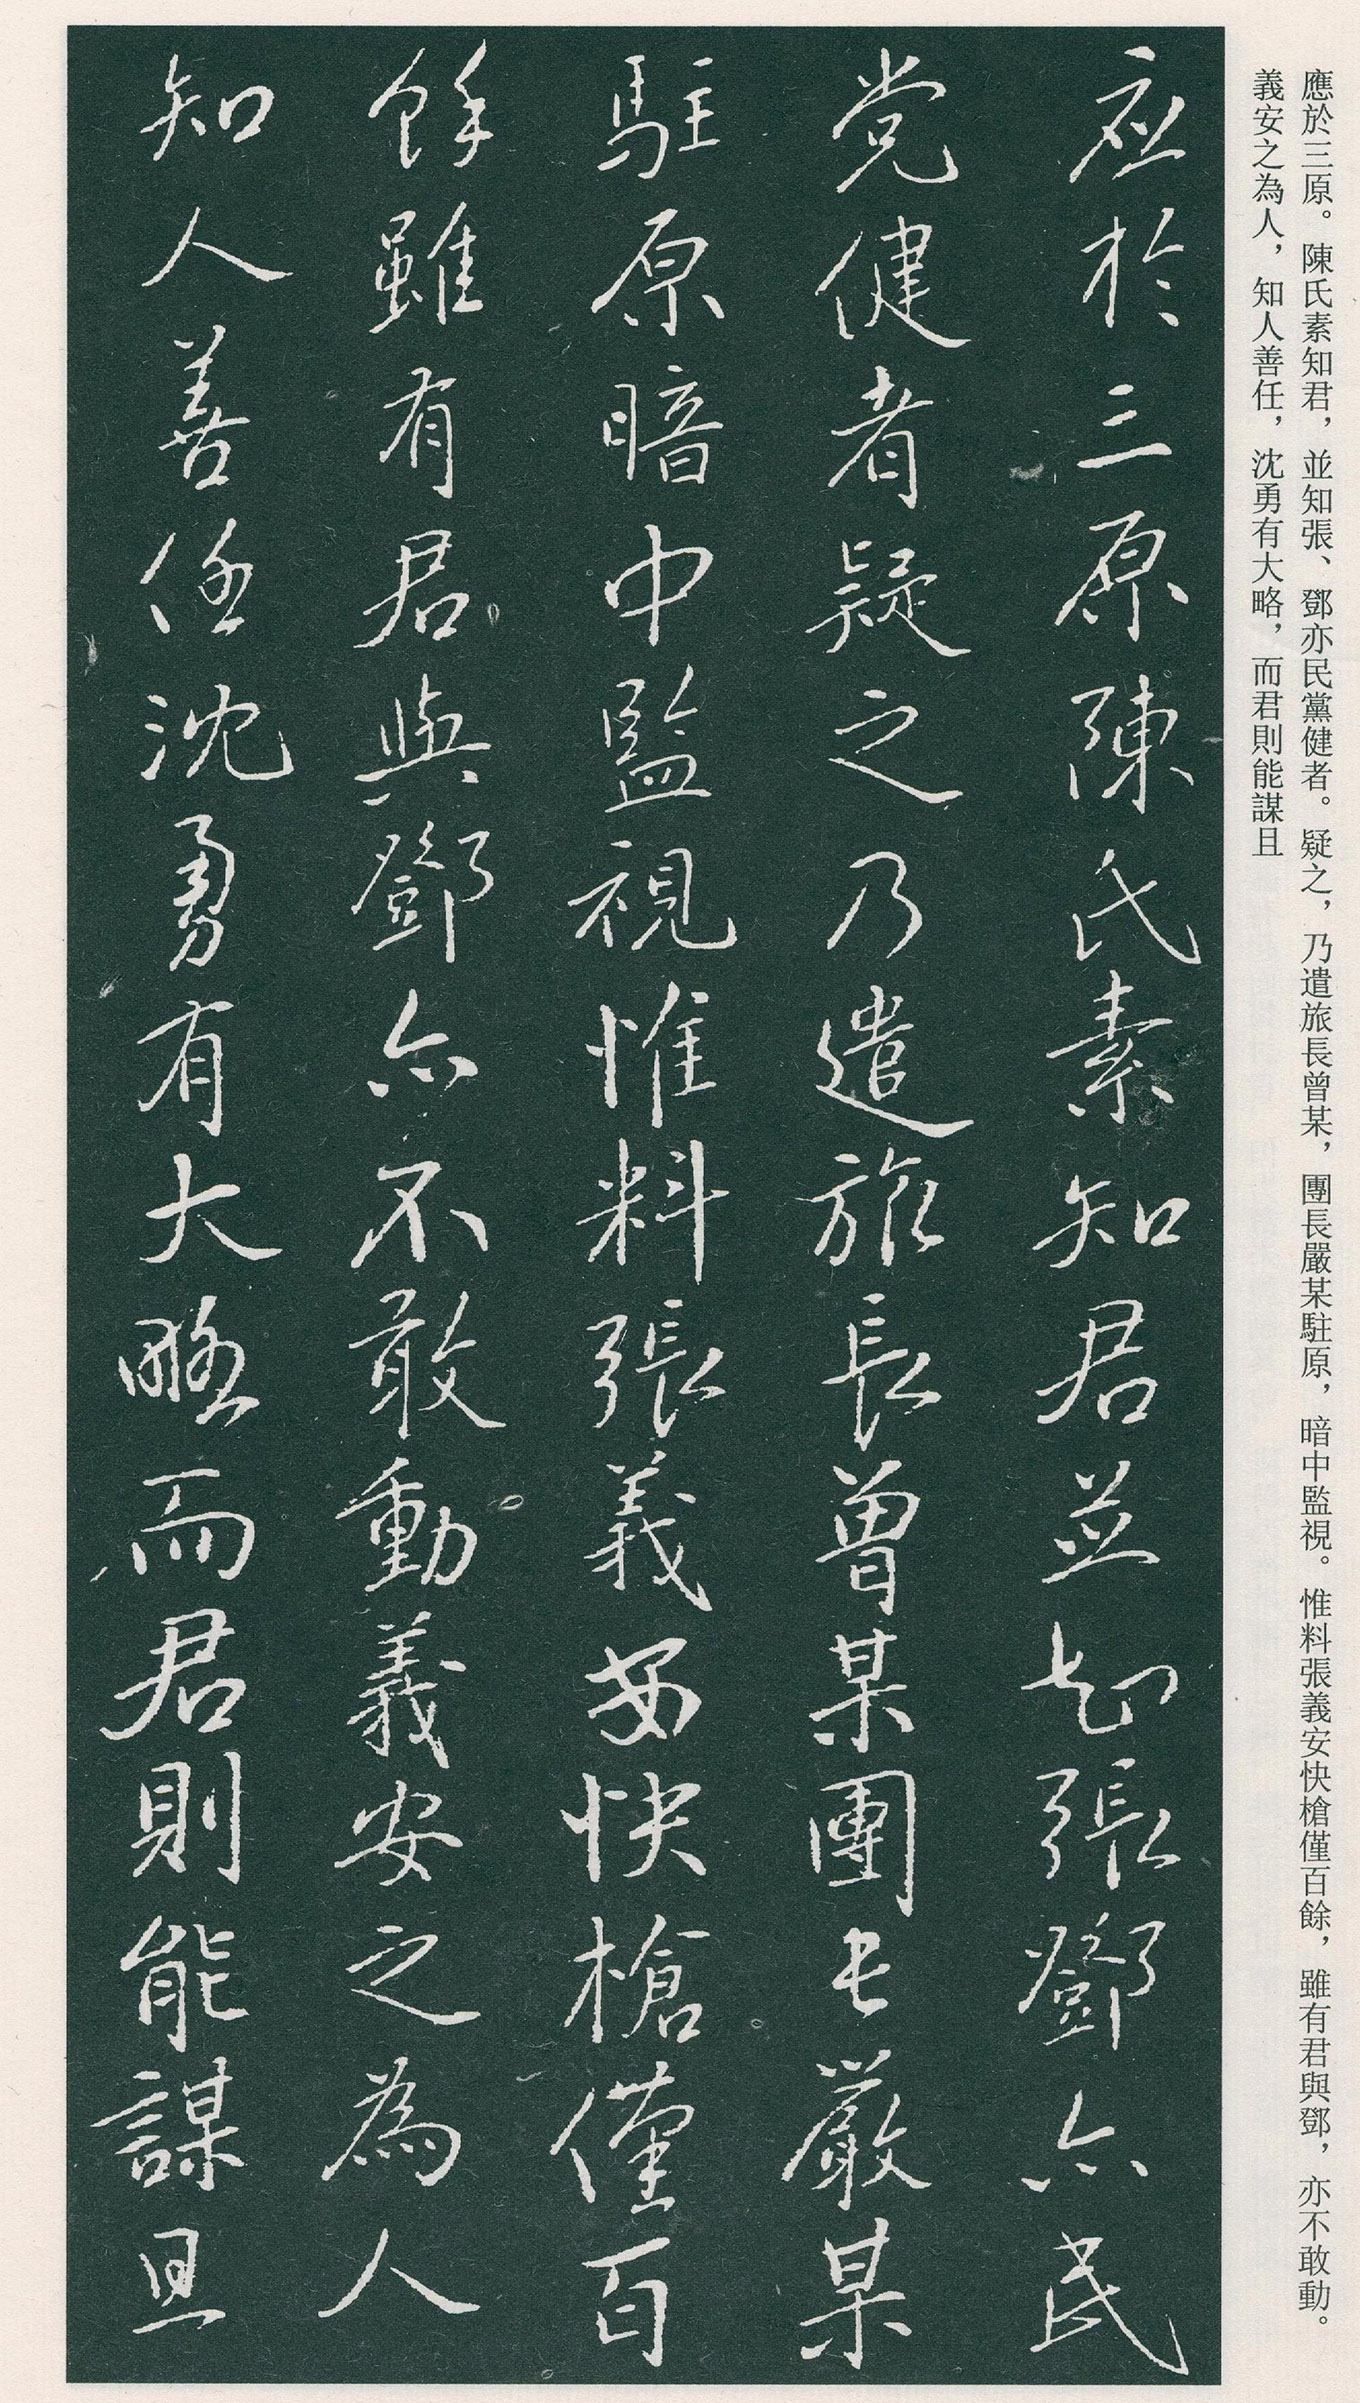 應於三原。陳氏素知君，並知張、鄧亦民黨健者。疑之，乃遣旅長曾某，團長嚴某駐原，暗中監視。惟料張義安快槍僅百餘，雖有君與鄧，亦不敢動。
義安之為人，知人善任，沈勇有大略，而君則能謀且
应於三原陳氏素知君並知張鄧亦民
党健者疑之乃遣旅長曾某團長嚴某
駐原暗中監視惟料張義安快槍僅百
餘雖有君與鄧亦不敢動義安之為人
知人善任沈勇有大略而君則能謀且